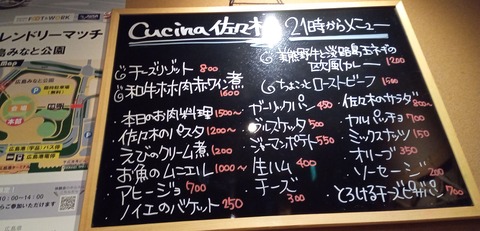 Cucina 佐々木 21時からメニュー
チーズリゾット 800
和牛ホホ肉赤ワイン煮 1600
本日のお肉料理 1500〜
佐々木のパスタ 1200〜
えびのクリーム煮 1200
お魚のムニエル 1000〜
アヒージョ 700
ノイエのバケット 250
熊野牛と淡路島玉ネギの
欧風カレー 1200
ちょこっとローストビーフ 1500
ガーリックパン 450
ブルスケッタ 500
ジャーマンポテト 550
生ハム 400
チーズ 300
佐々木のサラダ 800〜
カルパッチョ 700
ミックスナッツ 150
オリーブ 350
ソーセージ 200
とろけるチーズピザパン 700
レンドリーマッチ
島みなと公園
Map
FOOT&WORK